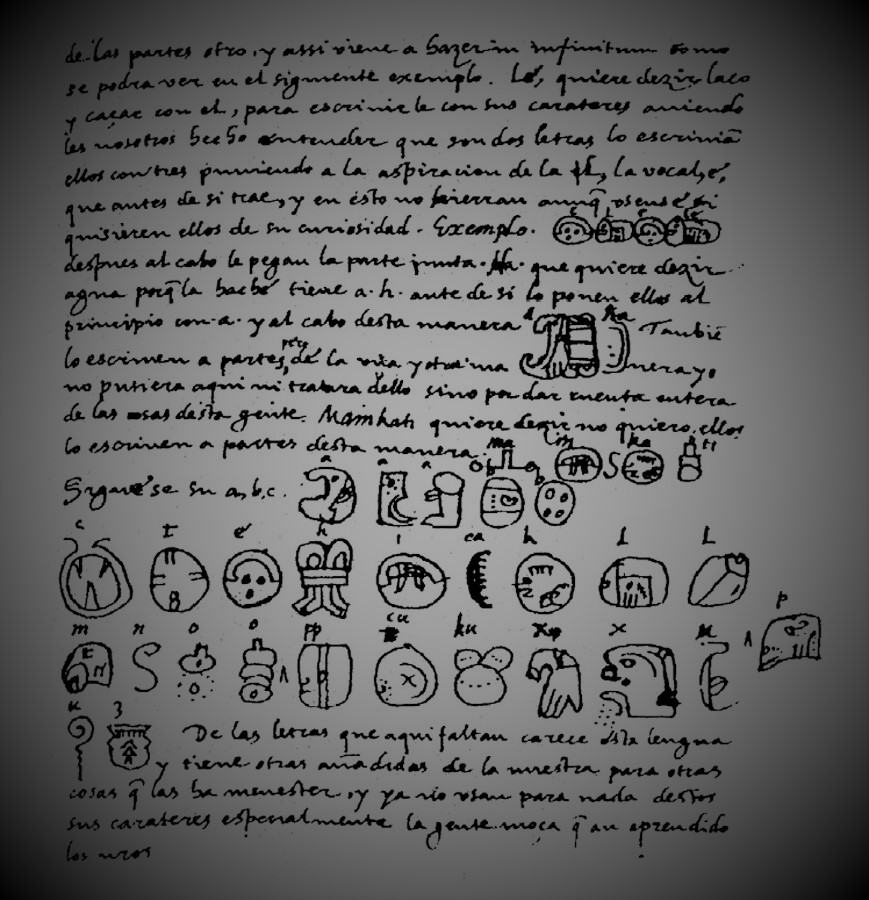 de las partes otro, y assi viene a hazer in infinitum como
se podra ver en el siguiente exemplo. Lé, quiere dezir laço
y caçar con el, para escrivirle con sus carateres aviendo
les nosotros hecho entender que son dos letras lo escrivian
ellos con tres puniendo a la aspiracion de la l, la vocal, é,
que antes de si trae, y en esto no hierran aunq̃ usense, si
quisieren ellos de su curiosidad. Exemplo. e l e lé
despues al cabo le pegan la parte junta. Ha. que quiere dezir
agua porq̃ la haché tiene a. h. ante de si lo ponen ellos al
principio con a. y al cabo desta manera a ha Tambiẽ
lo escriven a partes, pero de la una y otra ma nera yo
no pusiera aqui ni tratara dello sino por dar cuenta entera
de las cosas desta gente. Mainkati quiere dezir no quiero, ellos
lo escriven a partes desta manera. ma i n ka ti
Siguese su a, b, c. a a a b b
c t é h i ca k l l
m n o o pp cu ku x x u p
u z De las letras que aqui faltan carece esta lengua
y tiene otras añadidas de la nuestra para otras
cosas q̃ las ha menester, y ya no usan para nada destos
sus carateres especialmente la gente moça q̃ an aprendido
los nros